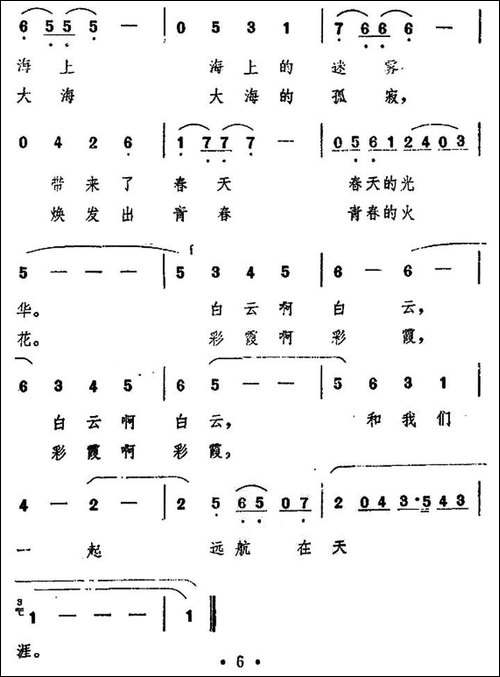 6 5 5 5 — | 0 5 3 1 | 7 6 6 6 — |
海上 海上的迷雾
大海 大海的孤寂，
0 4 2 6 | 1 7 7 7 — | 0 5 6 1 2 4 0 3 |
带来了春天 春天的光
焕发出青春 青春的火
5 — — — | 5 3 4 5 | 6 — 6 — |
华。 白云啊白云，
花。 彩霞啊彩霞，
6 3 4 5 | 6 5 — — | 5 6 3 1 |
白云啊白云， 和我们
彩霞啊彩霞，
4 — 2 — | 2 5 6 5 0 7 | 2 0 4 3·5 4 3 |
一起 远航在天
1 — — — 1 ‖
涯。
· 6 ·